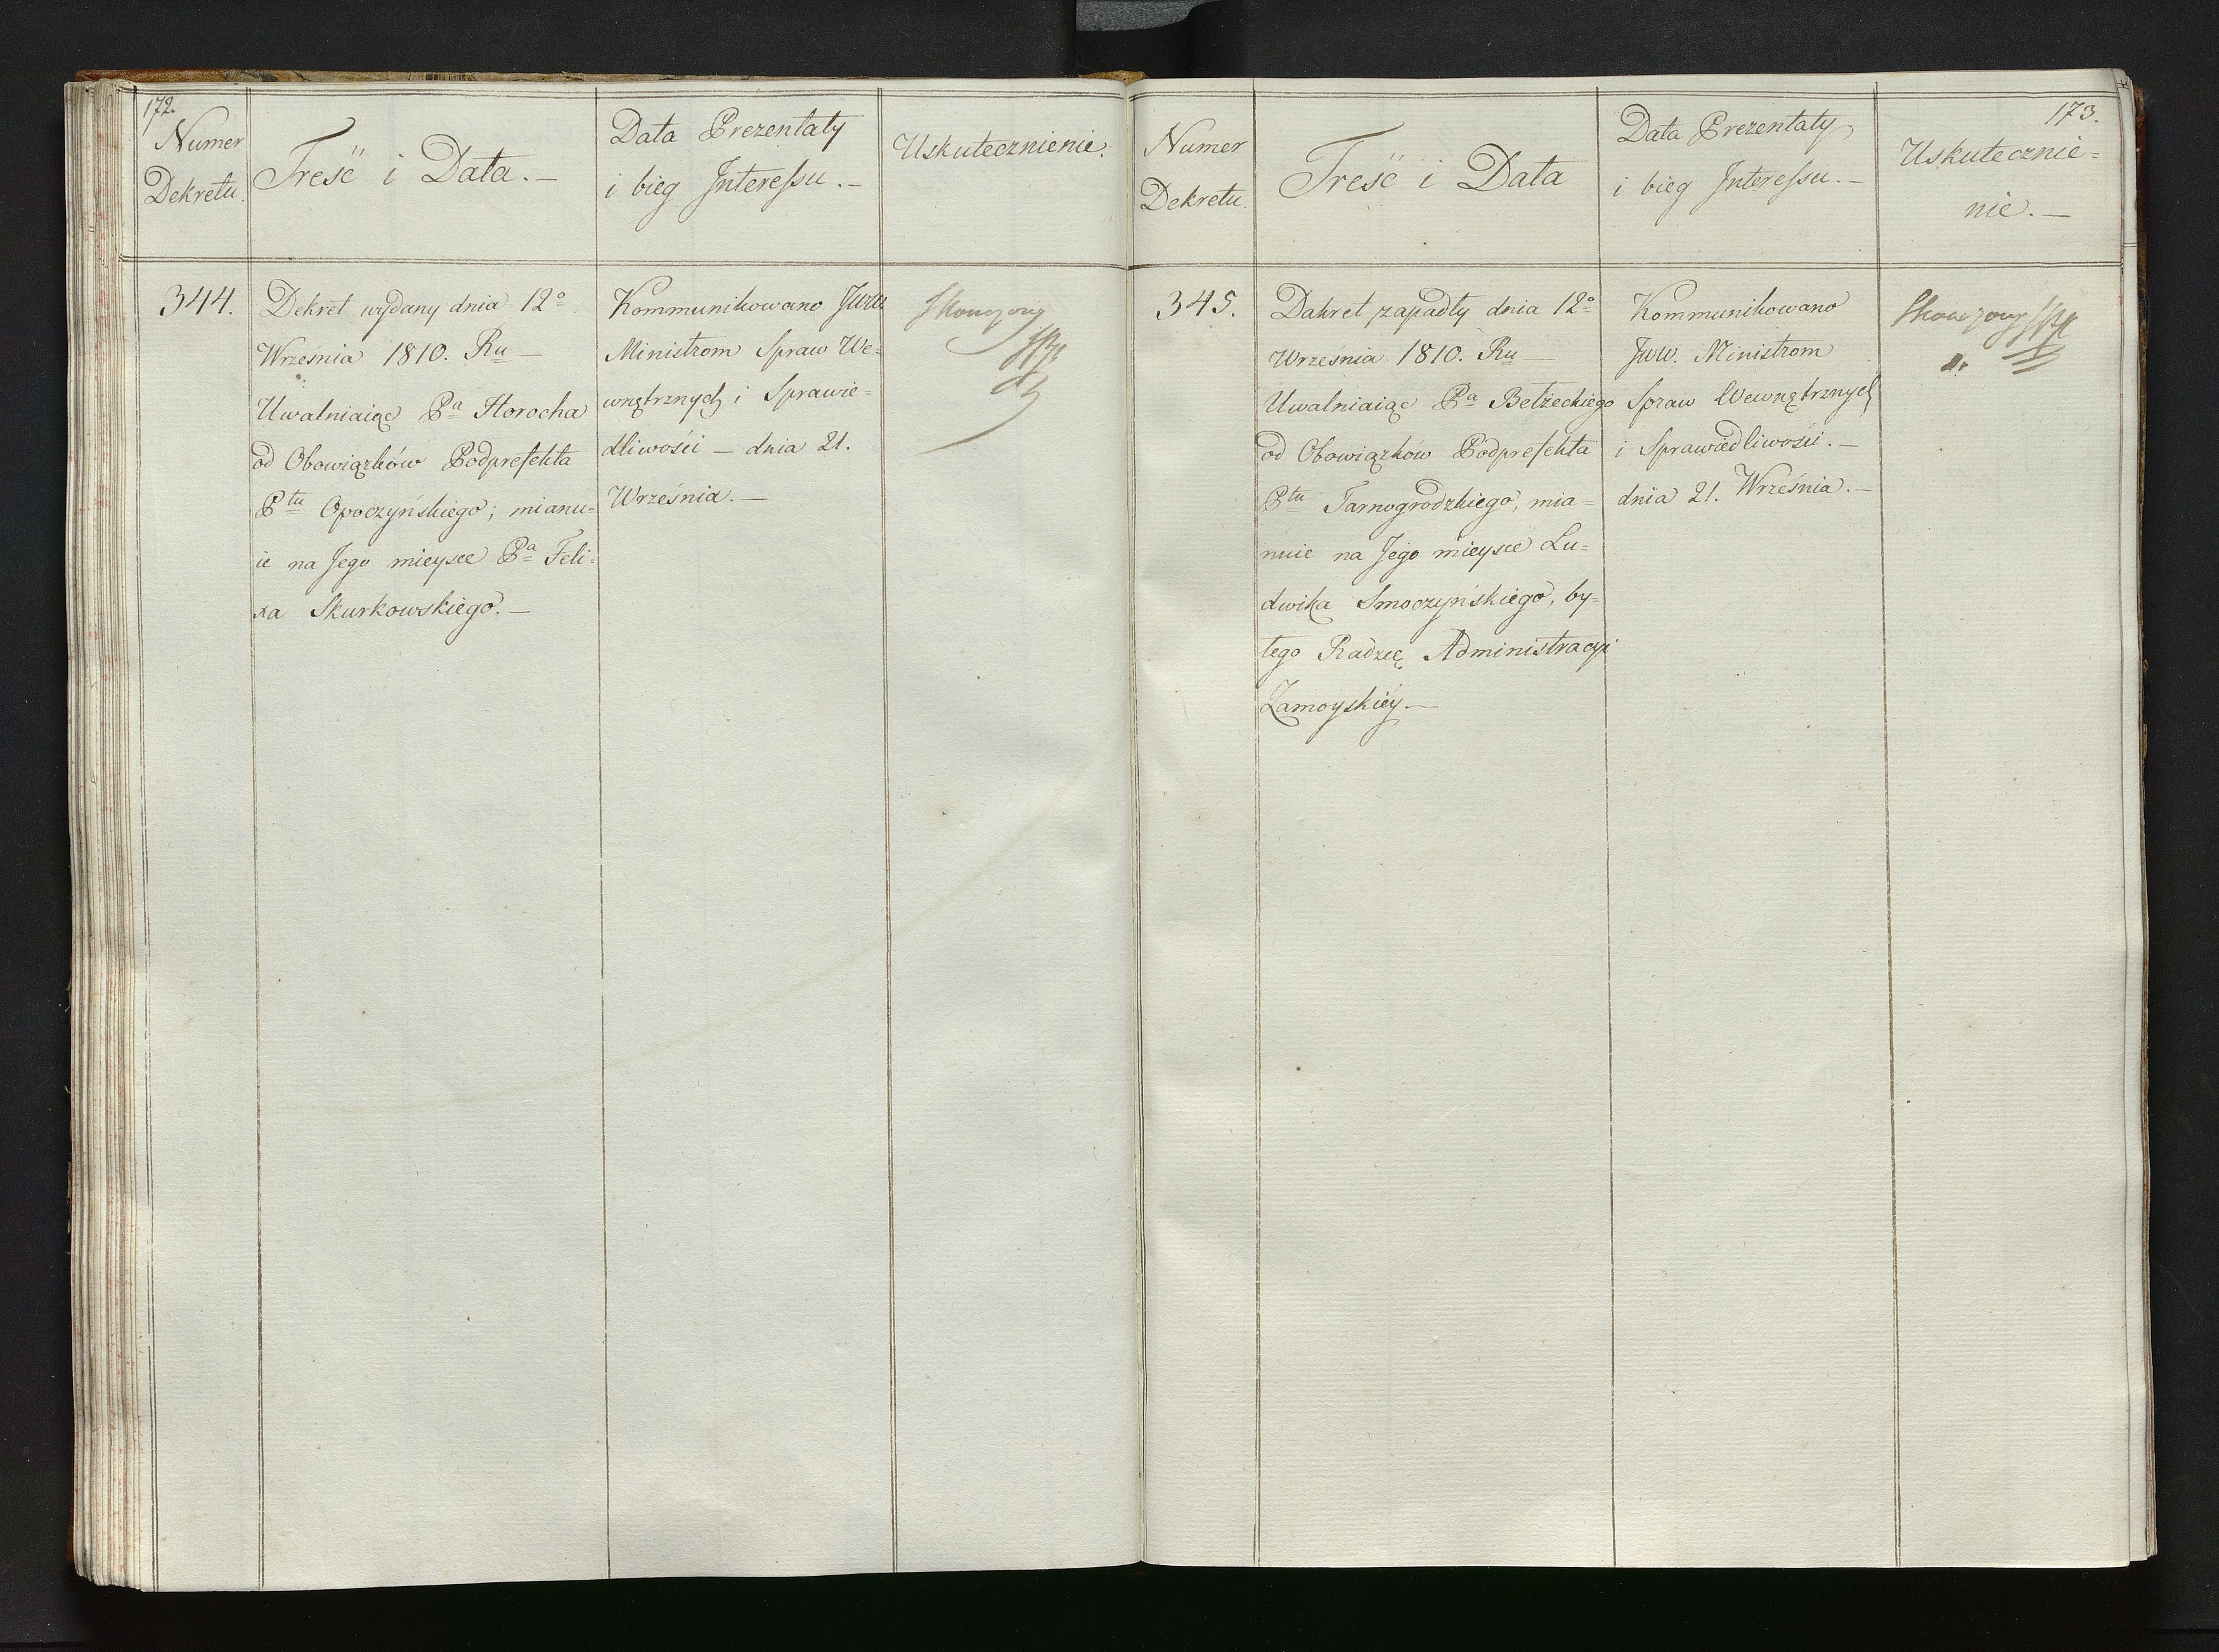 172.
Numer
Dekretu.
Treść i Data. —
Data Prezentaty
i bieg Interessu. —
Uskutecznienie.
344.
Dekret wydany dnia 12º
Września 1810. Ru —
Uwalniaiąc Pa Horocha
od Obowiązków Podprefekta
Ptu Opoczyńskiego; mianu=
ie na Jego mieysce Pa Feli=
xa Skurkowskiego. —
Kommunikowano Jww.
Ministrom Spraw We=
wnętrznych i Sprawie=
dliwości — dnia 21.
Września. —
Skonczony
173.
Numer
Dekretu.
Treść i Data
Data Prezentaty
i bieg Interessu. —
Uskutecznie=
nie. —
345.
Dakret zapadły dnia 12º
Września 1810. Ru —
Uwalniaiąc Pa Bełżeckiego
od Obowiązków Podprefekta
Ptu Tarnogrodzkiego, mia=
nuie na Jego mieysce Lu=
dwika Smoczyńskiego, by=
łego Radzcę Administracyi
Zamoyskiéy. —
Kommunikowano
Jww. Ministrom
Spraw Wewnętrznych
i Sprawiedliwości. —
dnia 21. Września. —
Skonczony